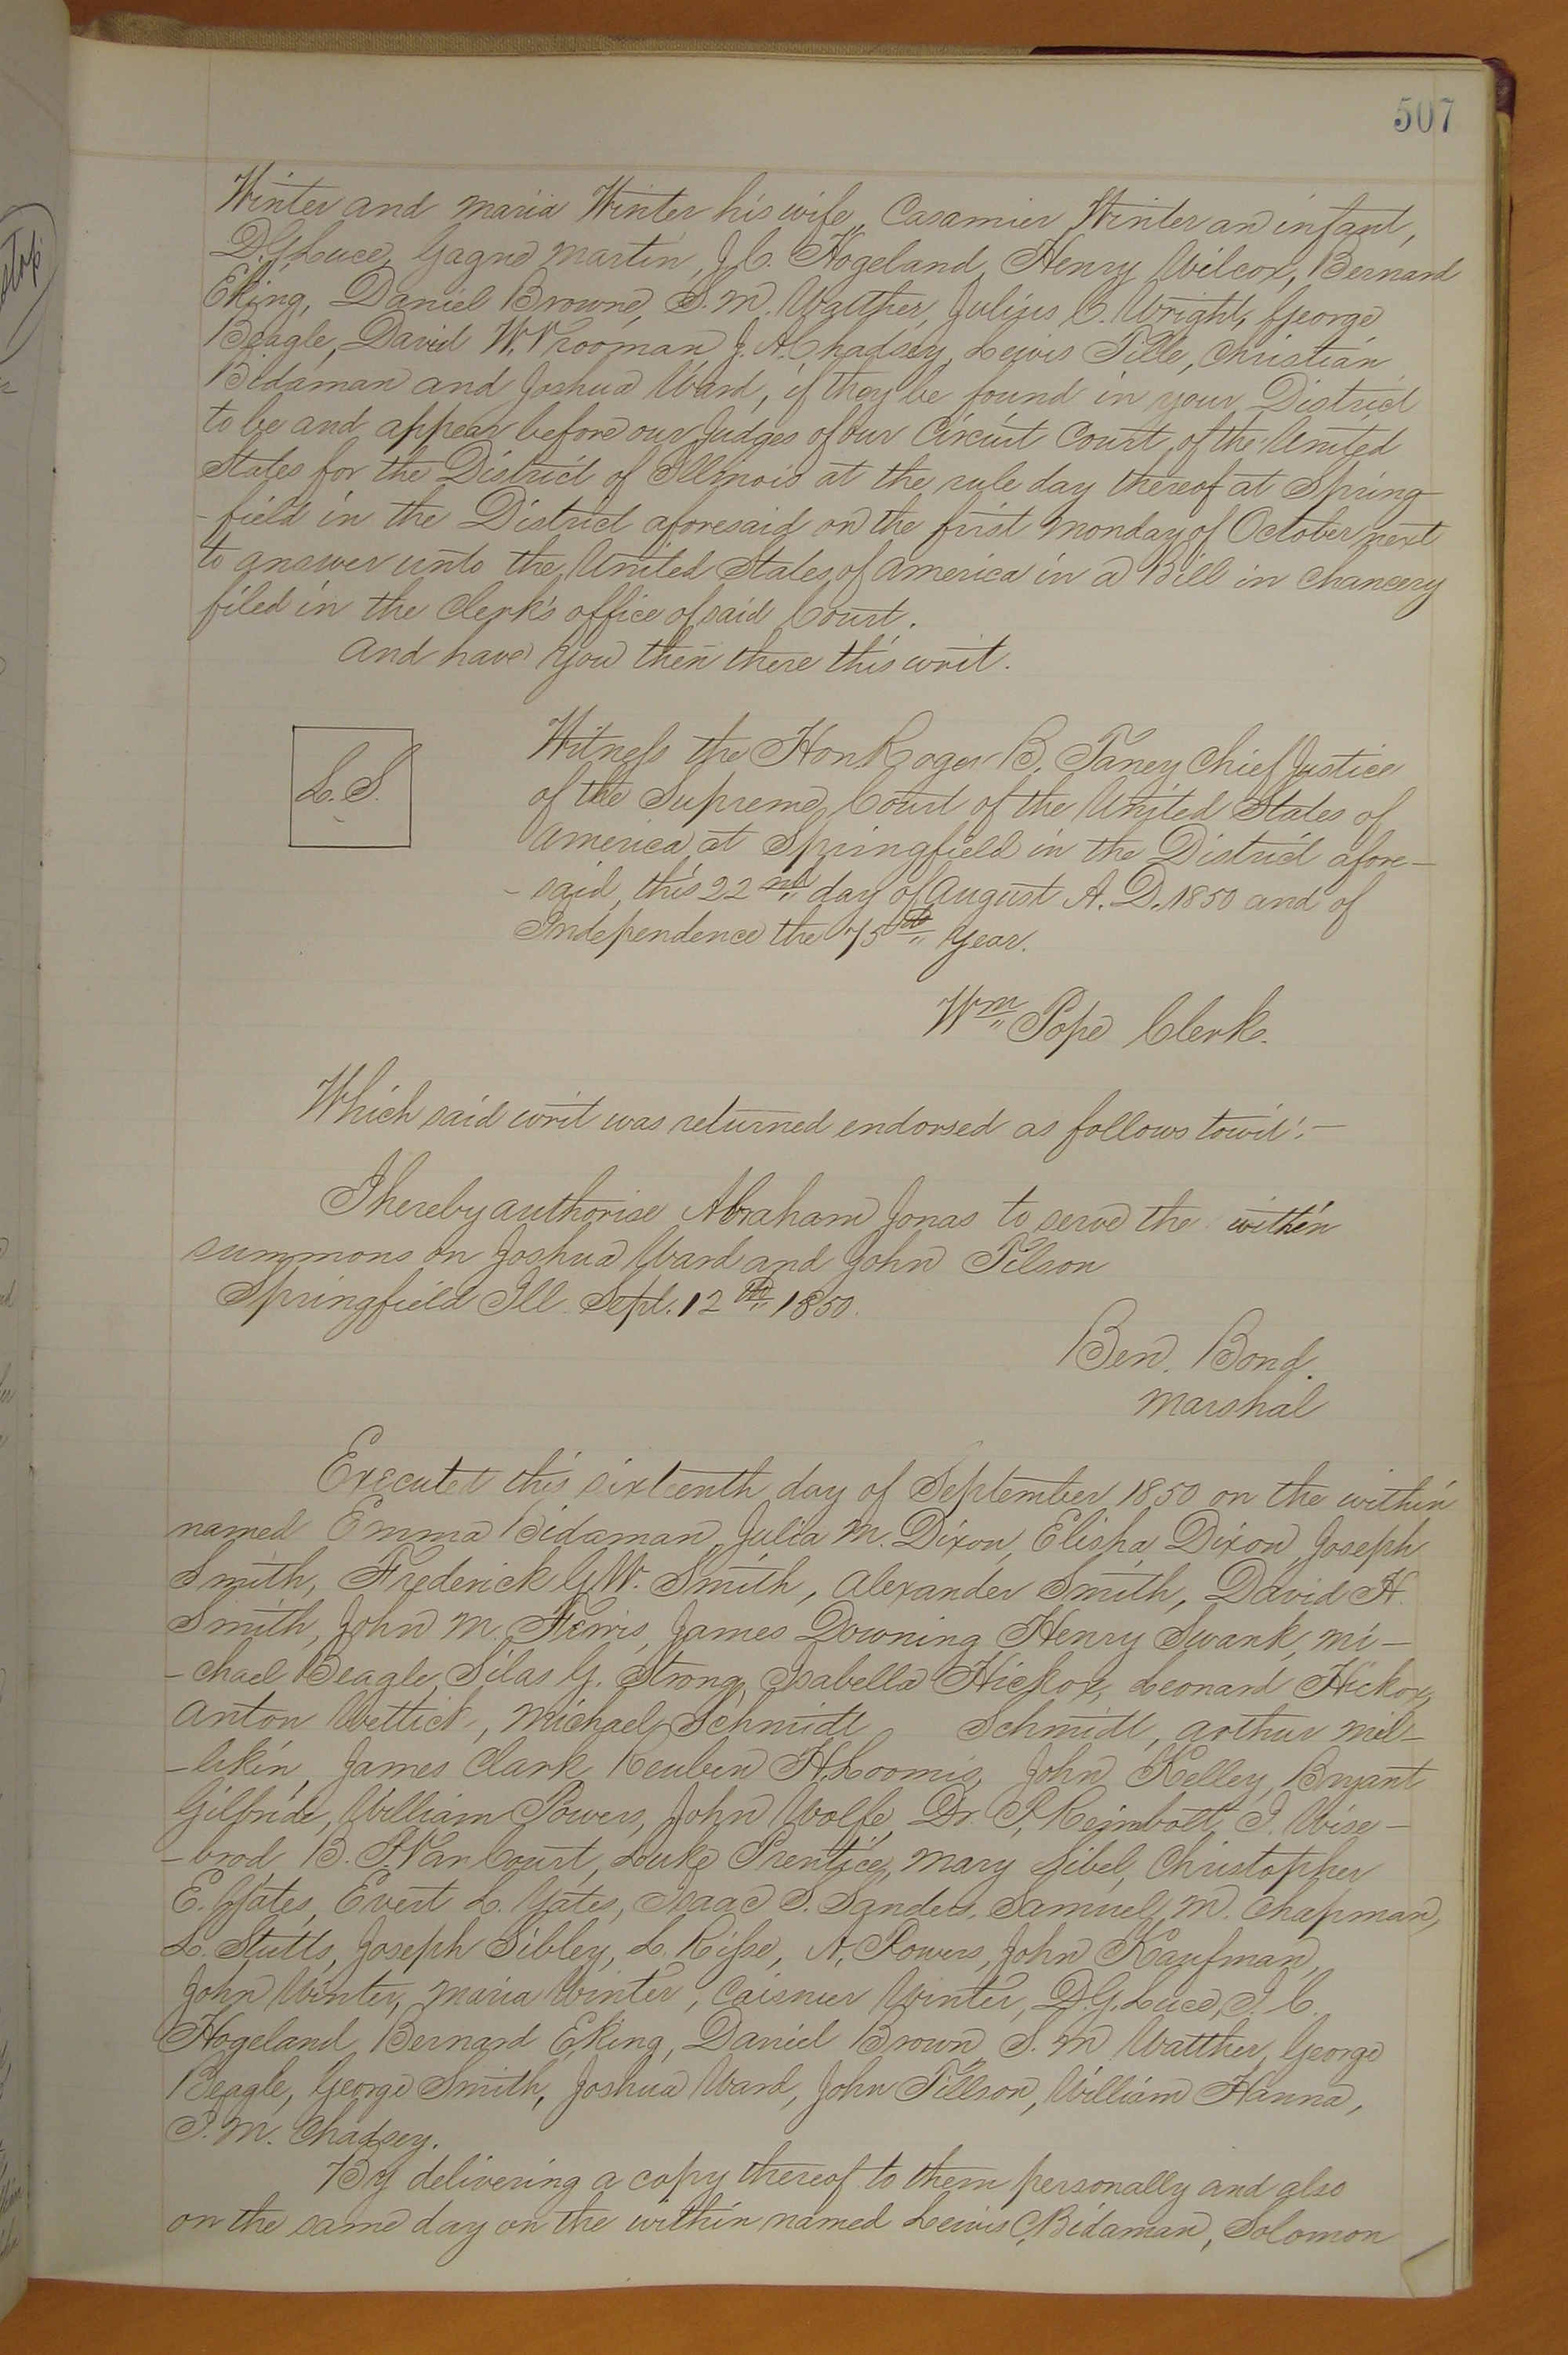 507
Winter and Maria Winter his wife, Casamier Winter an infant,
D. G. Luce, Gagne Martin, J. C. Hogeland, Henry Wilcox, Bernard
Eking, Daniel Browne, S. M. Walther, Julius C. Wright, George
Beagle, David W. Vrooman, J. A. Chadsey, Lewis Tille, Christian
Bidaman and Joshua Ward, if they be found in your District
to be and appear before our Judges of our Circuit Court of the United
States for the District of Illinois at the rule day thereof at Spring-
-field in the District aforesaid on the first Monday of October next
to answer unto the United States of America in a Bill in chancery
filed in the Clerk's office of said Court.
And have you then there this writ.
L. S.
Witness the Hon Roger B. Taney Chief Justice
of the Supreme Court of the United States of
America at Springfield in the District afore-
-said, this 22nd day of August A. D. 1850 and of
Independence the 75th year.
Wm Pope Clerk.
Which said writ was returned endorsed as follows towit:-
I hereby authorise Abraham Jonas to serve the within
summons on Joshua Ward and John Tilson
Springfield Ill Sept. 12th 1850.
Ben. Bond.
Marshal
Executed this sixteenth day of September 1850 on the within
named Emma Bidaman, Julia M. Dixon, Elisha Dixon, Joseph
Smith, Frederick G. W. Smith, Alexander Smith, David H.
Smith, John M. Ferris, James Downing, Henry Swank, Mi-
-chael Beagle, Silas G. Strong, Isabella Hickox, Leonard Hickox,
Anton Wettick, Michael Schmidt, Schmidt, Arthur Mil-
-likin, James Clark, Reuben H. Loomis, John Kelley, Bryant
Gilfride, William Powers, John Wolfe, Dr. P. Reimbolt, I. Wise-
-brod, B. S. Van Court, Luke Prentice, Mary Sibel, Christopher
E. Yates, Evert L. Yates, Isaac S. Sanders, Samuel M. Chapman,
L. Stutts, Joseph Sibley, L. Risse, A. Powers, John Kaufman,
John Winter, Maria Winter, Caisnier Winter, D. G. Luce, J. C.
Hogeland, Bernard Eking, Daniel Brown, S. M Watther, George
Beagle, George Smith, Joshua Ward, John Tillson, William Hanna,
P. M. Chadsey.
By delivering a copy thereof to them personally and also
on the same day on the within named Lewis C. Bidaman, Solomon